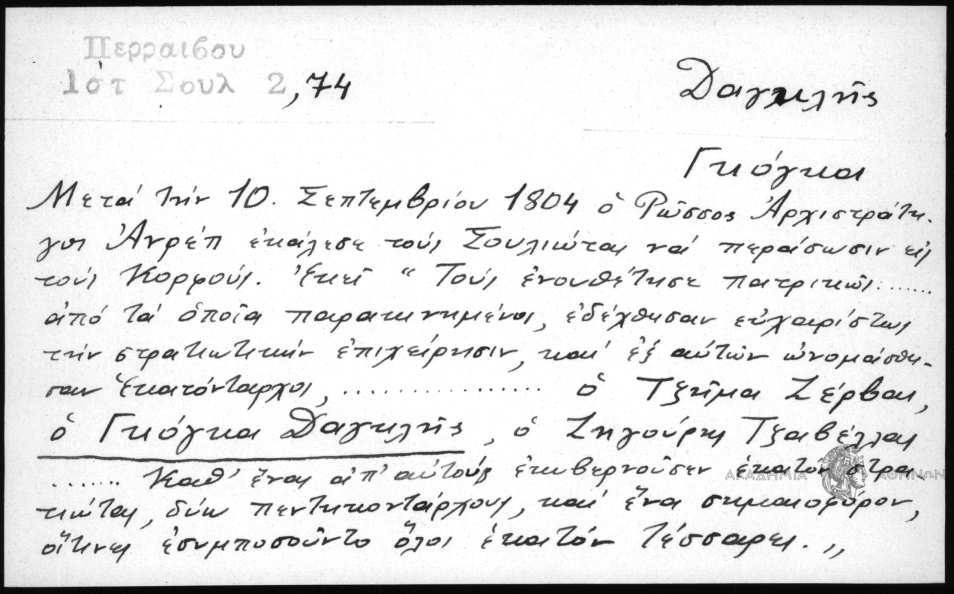 Περραιβου
Ιστ Σουλ 2,74
Δαγκλῆς
Γκόγκας
Μετά τήν 10. Σεπτεμβρίου 1804 ὁ Ρῶσσος Ἀρχιστράτη-
γος Ἀνρέπ ἐκάλεσε τούς Σουλιώτας νά περάσωσιν εἰς
τούς Κορφούς. Ἐκεῖ " Τούς ἐνουθέτησε πατρικῶς .......
ἀπό τά ὁποῖα παρακινημένοι, ἐδέχθησαν εὐχαρίστως
τήν στρατιωτικήν ἐπιχείρησιν, καί ἐξ αὐτῶν ὠνομάσθη-
σαν Ἑκατόνταρχοι, .................. ὁ Τζῆμα Ζέρβας,
ὁ Γκόγκας Δαγκλῆς, ὁ Ζηγούρης Τζαβέλλας
....... Καθ' ἕνας ἀπ' αὐτούς ἐκυβερνοῦσεν ἑκατόν στρα-
ΑΚΑΔΗΜΙΑ ΑΘΗΝΩΝ
τιώτας, δύω πεντηκοντάρχους, καί ἕνα σημαιοφόρον,
οἵτινες ἐσυμποσοῦντο ὅλοι ἑκατόν τέσσαρες. "